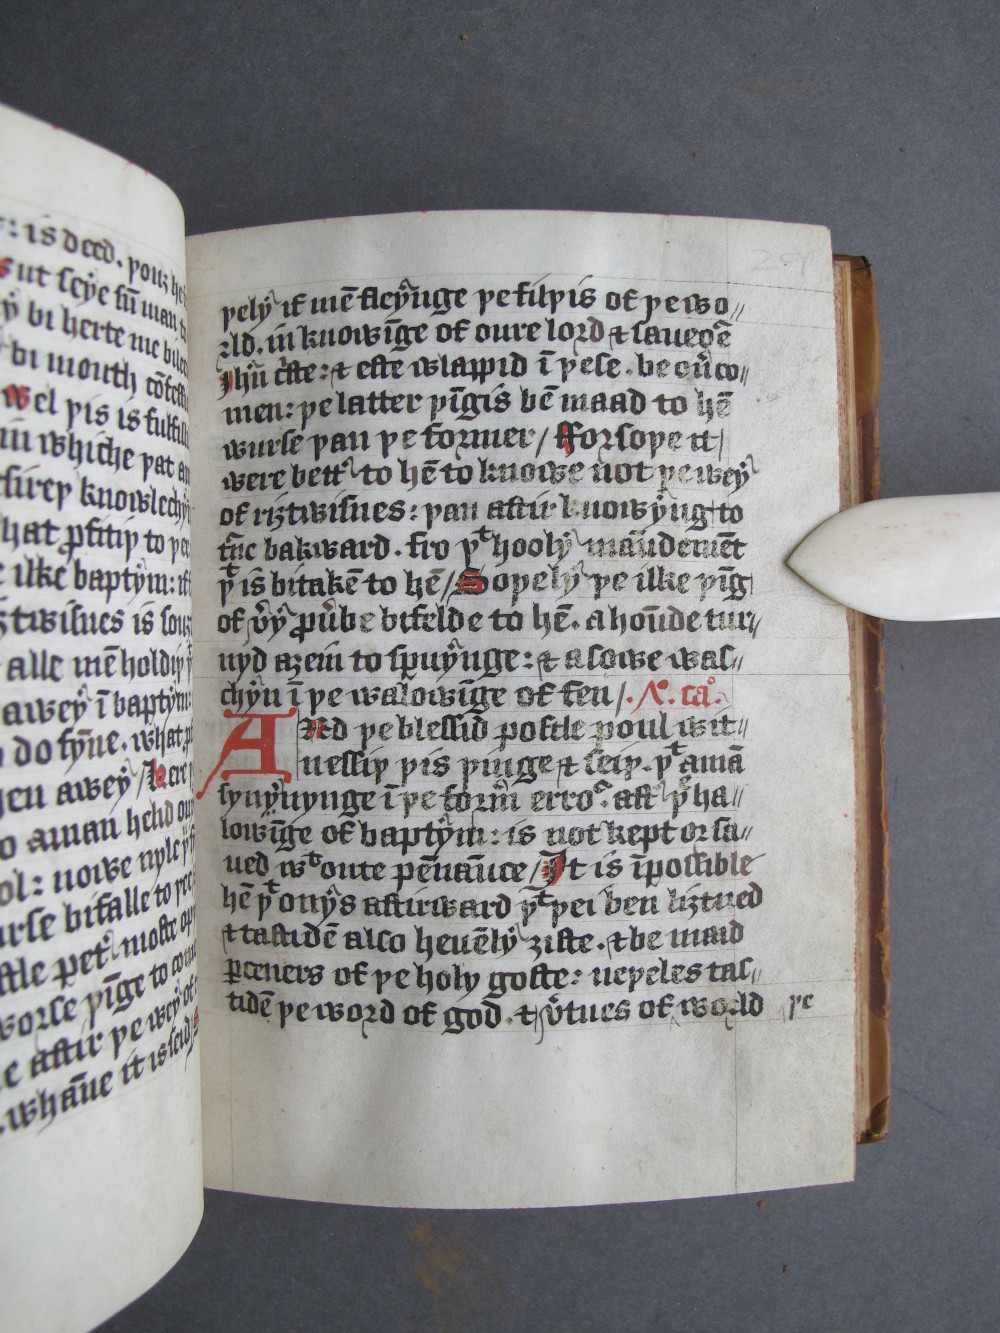 : is deed. ȝouȝ he
ut seye sū man
bi herte me bilee
bi mouth cōfess
wel þis is fulfill
in whiche þat a
fireþ knowlechy
hat ꝓfitiþ to þe
ilke baptym: if
ȝtwisnes is
alle mē holdiþ
awey ī baptym:
do synne. what
awey / here
aman hehd
ol: nowe nyle
urse bifalle to
stle petˀ moste
worse þīge to co
e aftir þe wey of
. whāne it is seid
þelyˀ if mē fleyˀnge þe filþis of þe wo //
rld. in knowīge of oure lord ⁊ saueoē
Jhū cˀste: ⁊ efte wlappid ī þese. be oūˀco //
men: þe latter þīgis bē maad to hē
wurse þan þe former / fforsoþe it /
were bettˀ to hē to knowe not þe weyˀ
of riȝtwisnes: þan aftir knowyˀng to
tˀne bakward. fro þᵗ hoolyˀ maūdemēt
þᵗ is bitakē to hē / Soþelyˀ þe ilke þīg
of vˀyˀ ꝓūˀbe bifelde to hē. a hoūde tur //
nyd aȝein to spuyˀnge: ⁊ a sowe was //
chyˀn ī þe walowīge of fen / . N. caᵒ.
And þe blessid postle poul wit //
nessiþ þis þinge ⁊ seiþ. þᵗ a mā
synyˀnynge ī þe formˀ erroˀ. aftˀ þe ha //
lowīge of baptyˀm: is not kept or sa //
ued wᵗ oute penaūce / It is īpossible
hē þᵗ onyˀs aftirward þᵗ þei ben liȝtned
⁊ tastidē also heuēlyˀ ȝifte. ⁊ be maad
ꝑceners of þe holy goste: neþeles tas //
tidē þe word of god. ⁊ vˀtues of world þe